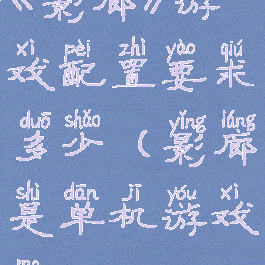 《影廊》游
xì pèi zhì yào qiú
戏配置要求
duō shǎo yǐng láng
多少（影廊
shì dān jī yóu xì
是单机游戏
ma